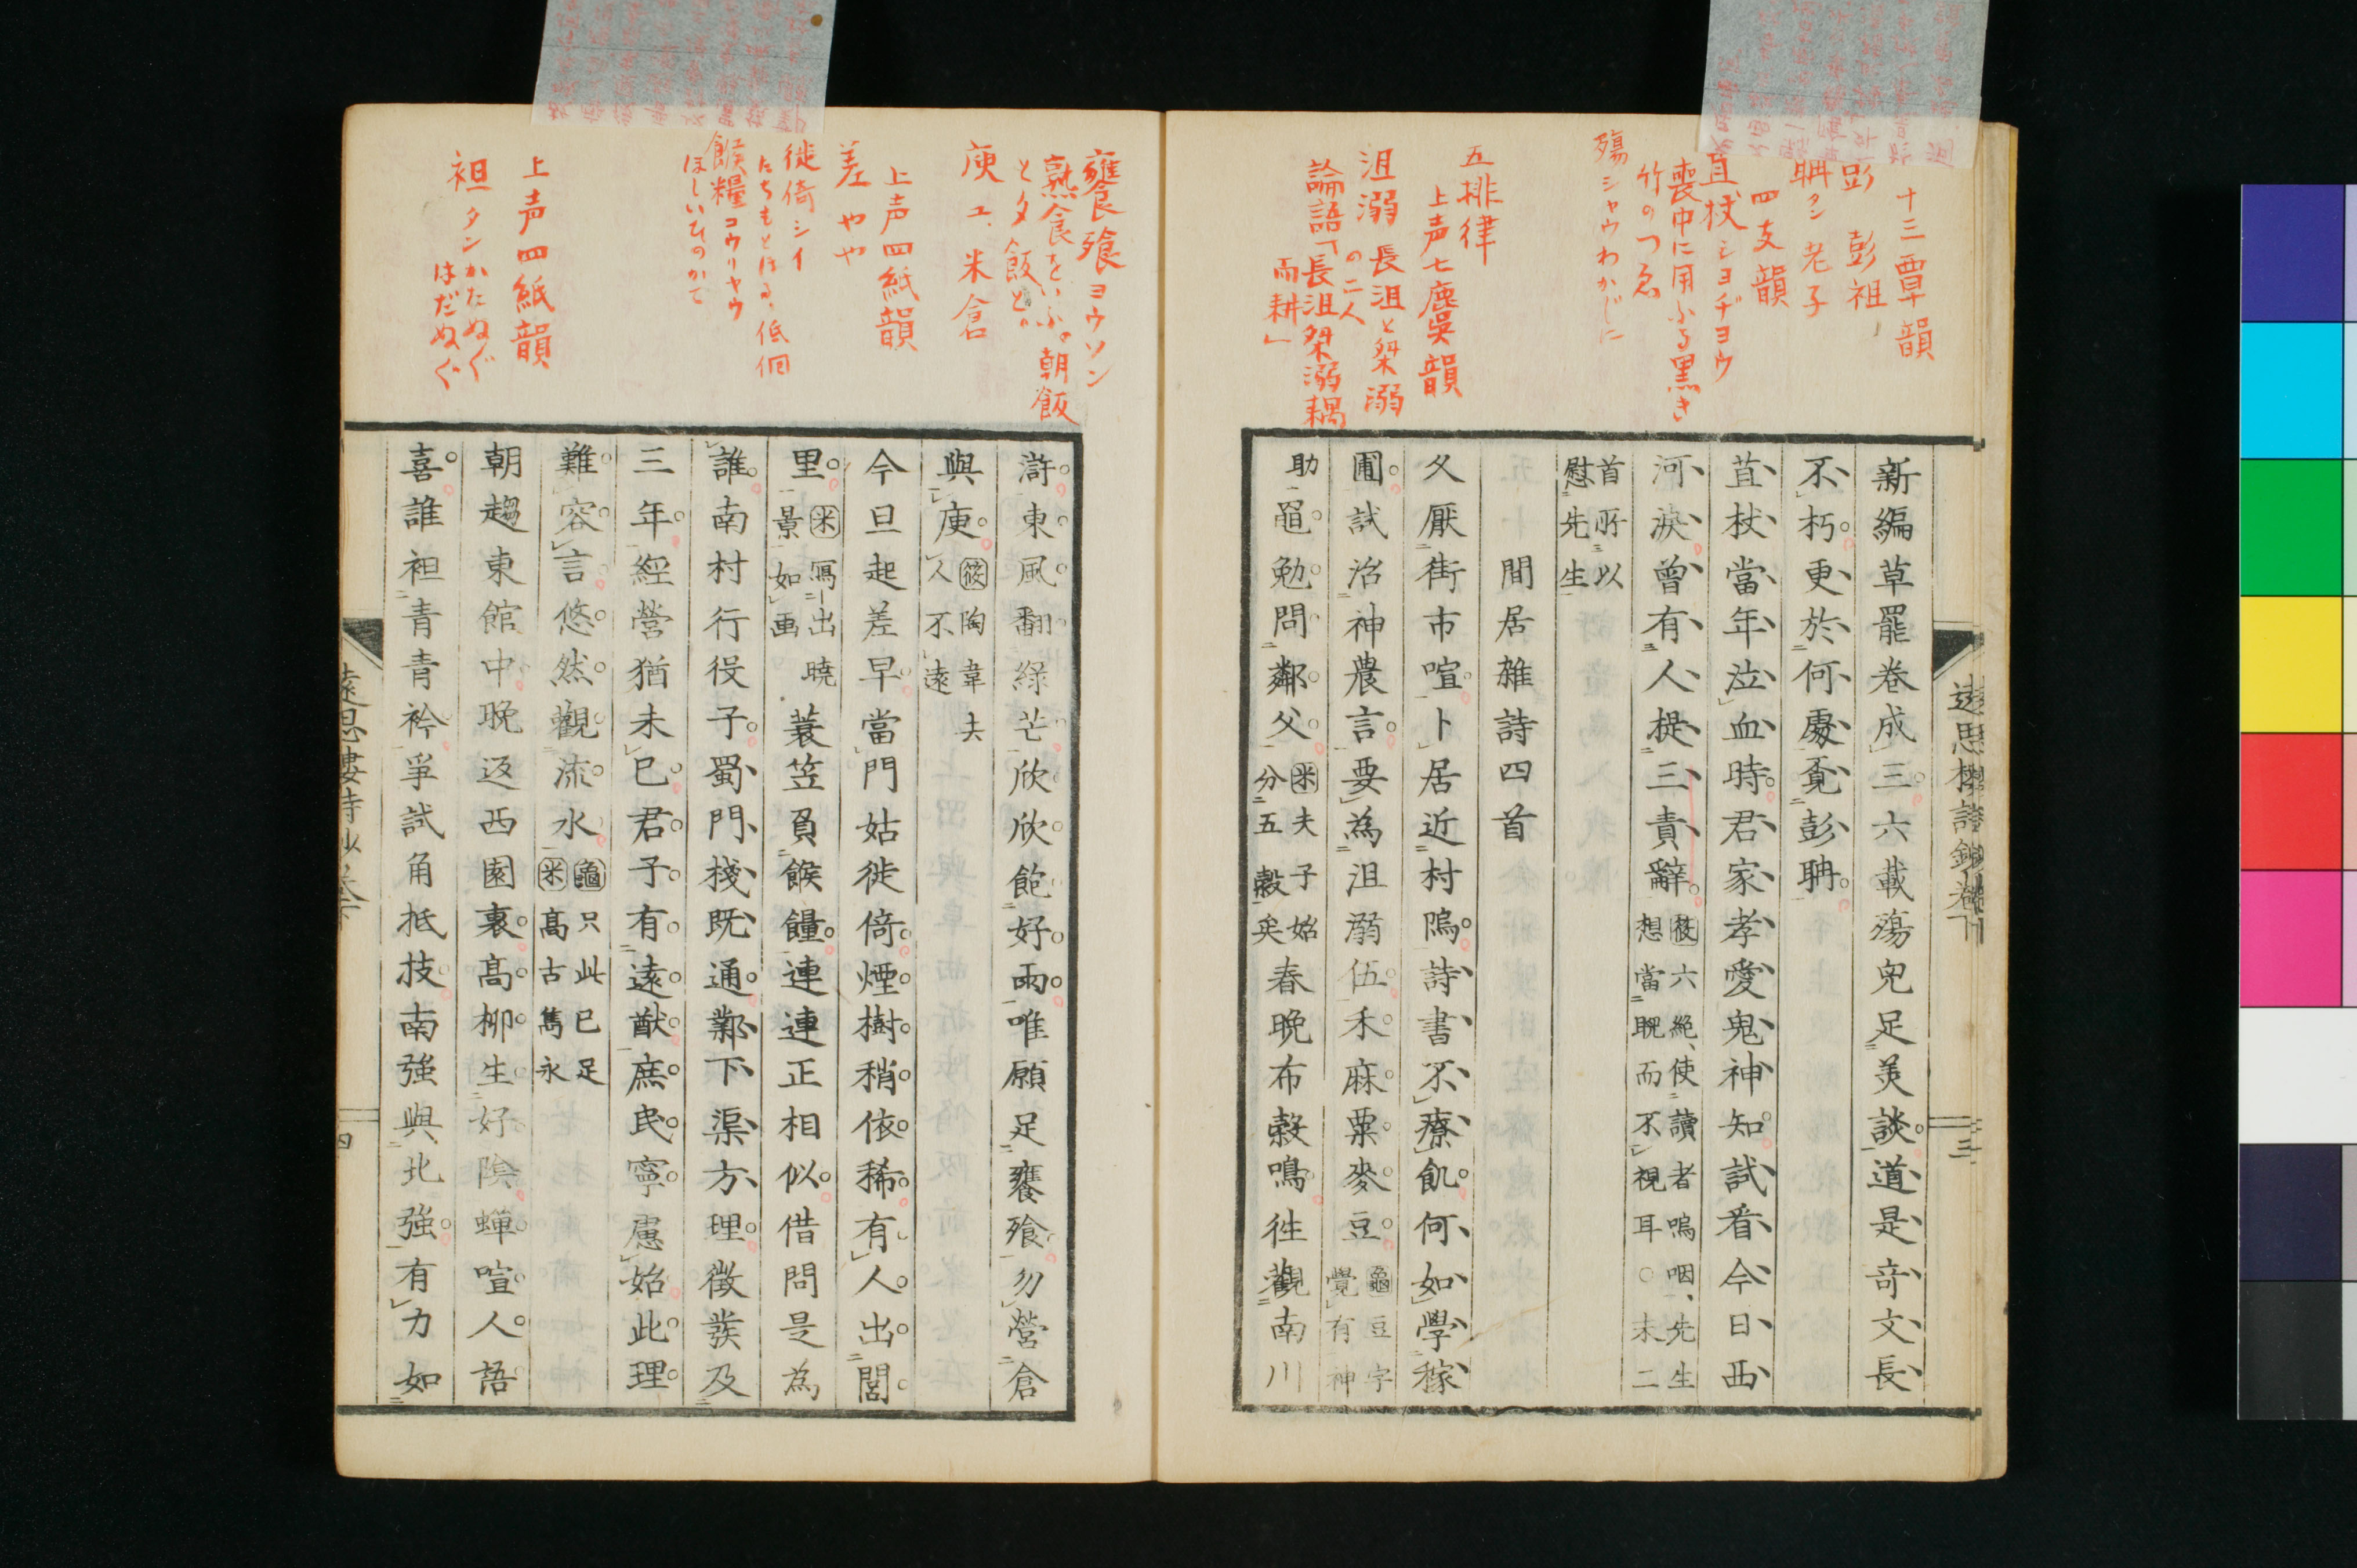 十三覃韻
彭 彭祖
聃タン 老子
四支韻
苴杖シヨヂヨウ
喪中に用ふる黒き
竹のつゑ
殤シヤウわかじに
五排律
上声七麌韻
沮溺 長沮と桀溺
の二人
論語「長沮桀溺耦
而耕」
遠思樓詩鈔卷下
三
新編草罷卷成三六載殤兒足美談道是奇文長
不朽更於何處覓彭聃
苴杖當年泣血時君家孝愛鬼神知試看今日西
河淚曾有人提三責辭
筱六絶使讀者嗚咽先生
想當眤而不視耳○末二
首所以
慰先生
間居雜詩四首
久厭街市喧卜居近村隝詩書不療飢何如學稼
圃試治神農言要為沮溺伍禾麻粟麥豆
龜豆字
覺有神
助
黽勉問鄰父
米夫子始
分五穀矣
春晩布穀鳴往觀南川
饔飧ヨウソン
熟食をいふ。朝飯
と夕飯と。
庾ユ、米倉
上声四紙韻
差やや
徙倚シイ
たちもとほる、低徊
餱糧コウリヤウ
ほしいひのかて
上声四紙韻
袒タンかたぬぐ
はだぬぐ
滸東風翻綠芒欣欣飽好雨唯願足饔飧勿營倉
與庾
筱陶韋夫
人不遠
今旦起差早當門姑徙倚煙樹稍依稀有人出閭
里
米寫出曉
景如画
蓑笠負餱饟連連正相似借問是為
誰南村行役子蜀門棧既通鄴下渠方理徵發及
三年經營猶未已君子有遠猷庶民寧慮始此理
難容言悠然觀流水
龜只此已足
米高古雋永
朝趨東館中晩返西園裏高柳生好陰蟬喧人語
喜誰袒青青衿爭試角抵技南強與北強有力如
遠思樓詩鈔卷下
四